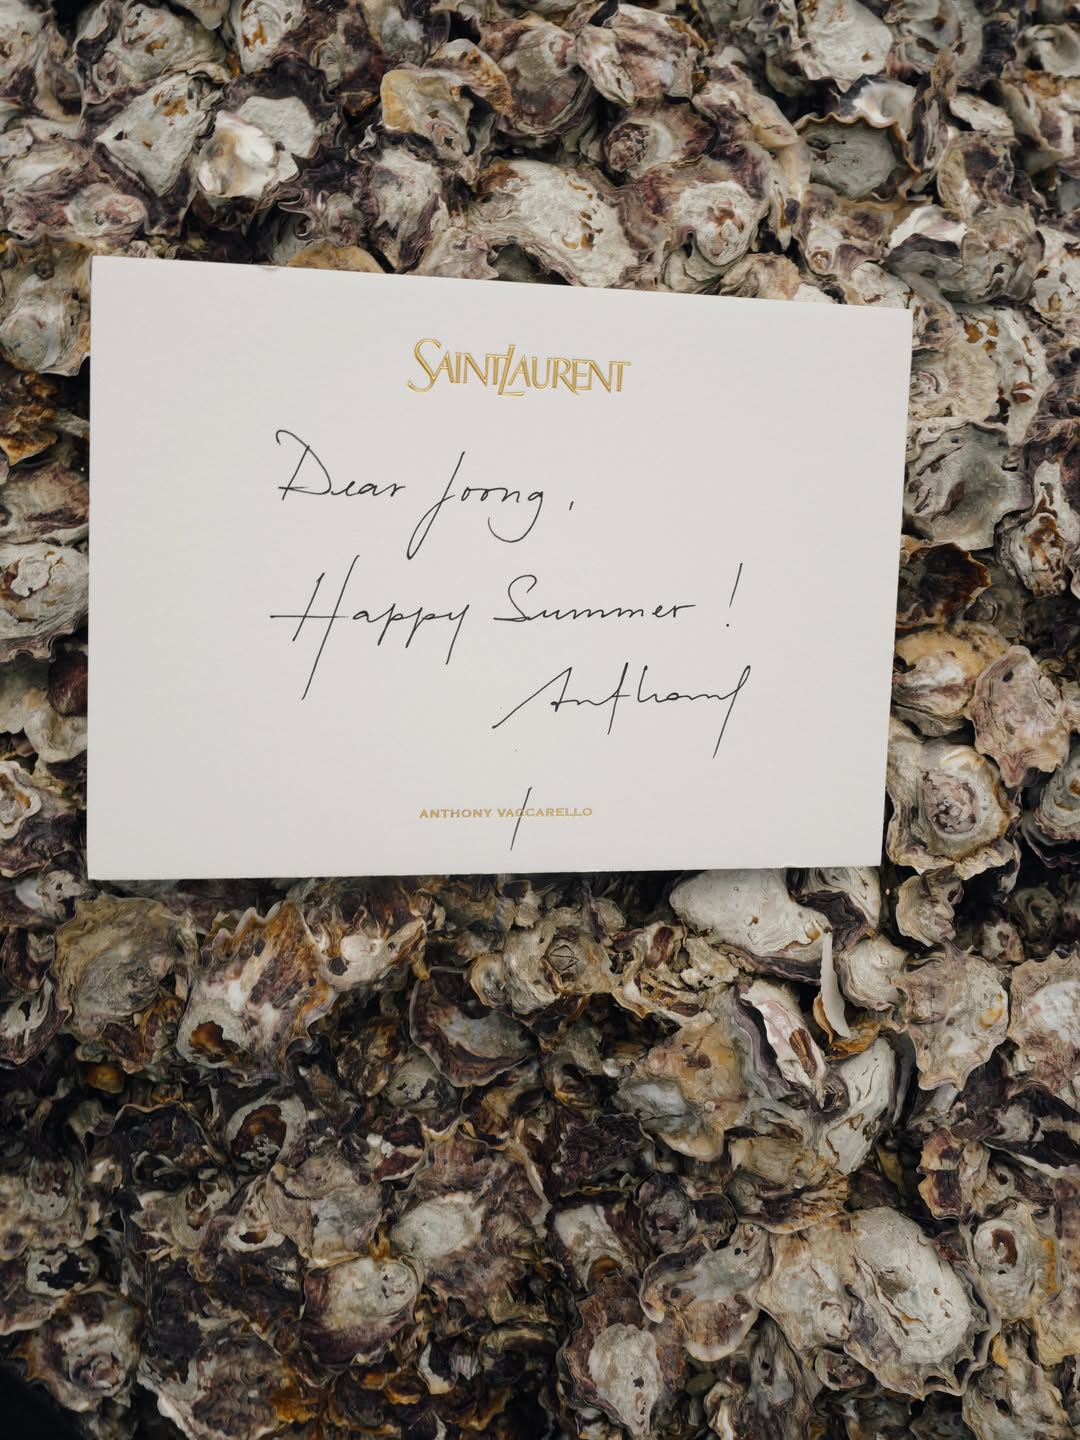 SAINT LAURENT
Dear Joong,
Happy Summer!
Anthony
ANTHONY VACCARELLO